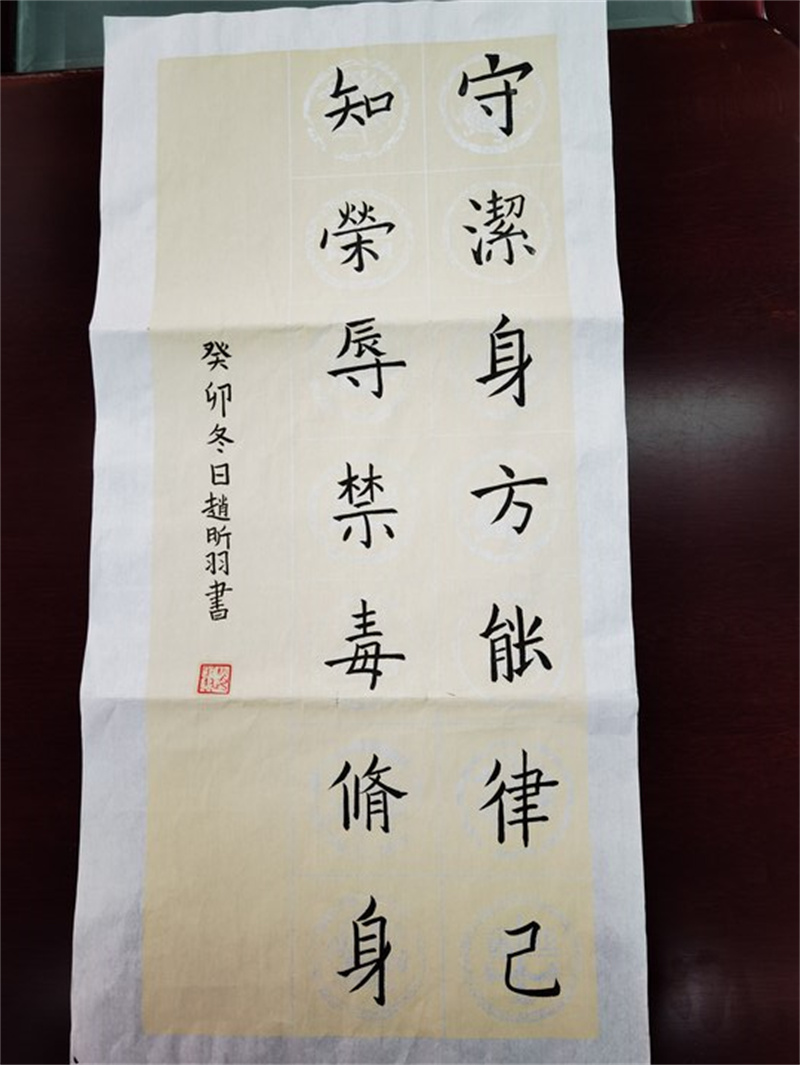 守潔身方能律己
知榮辱禁毒脩身
癸卯冬日趙昕羽書